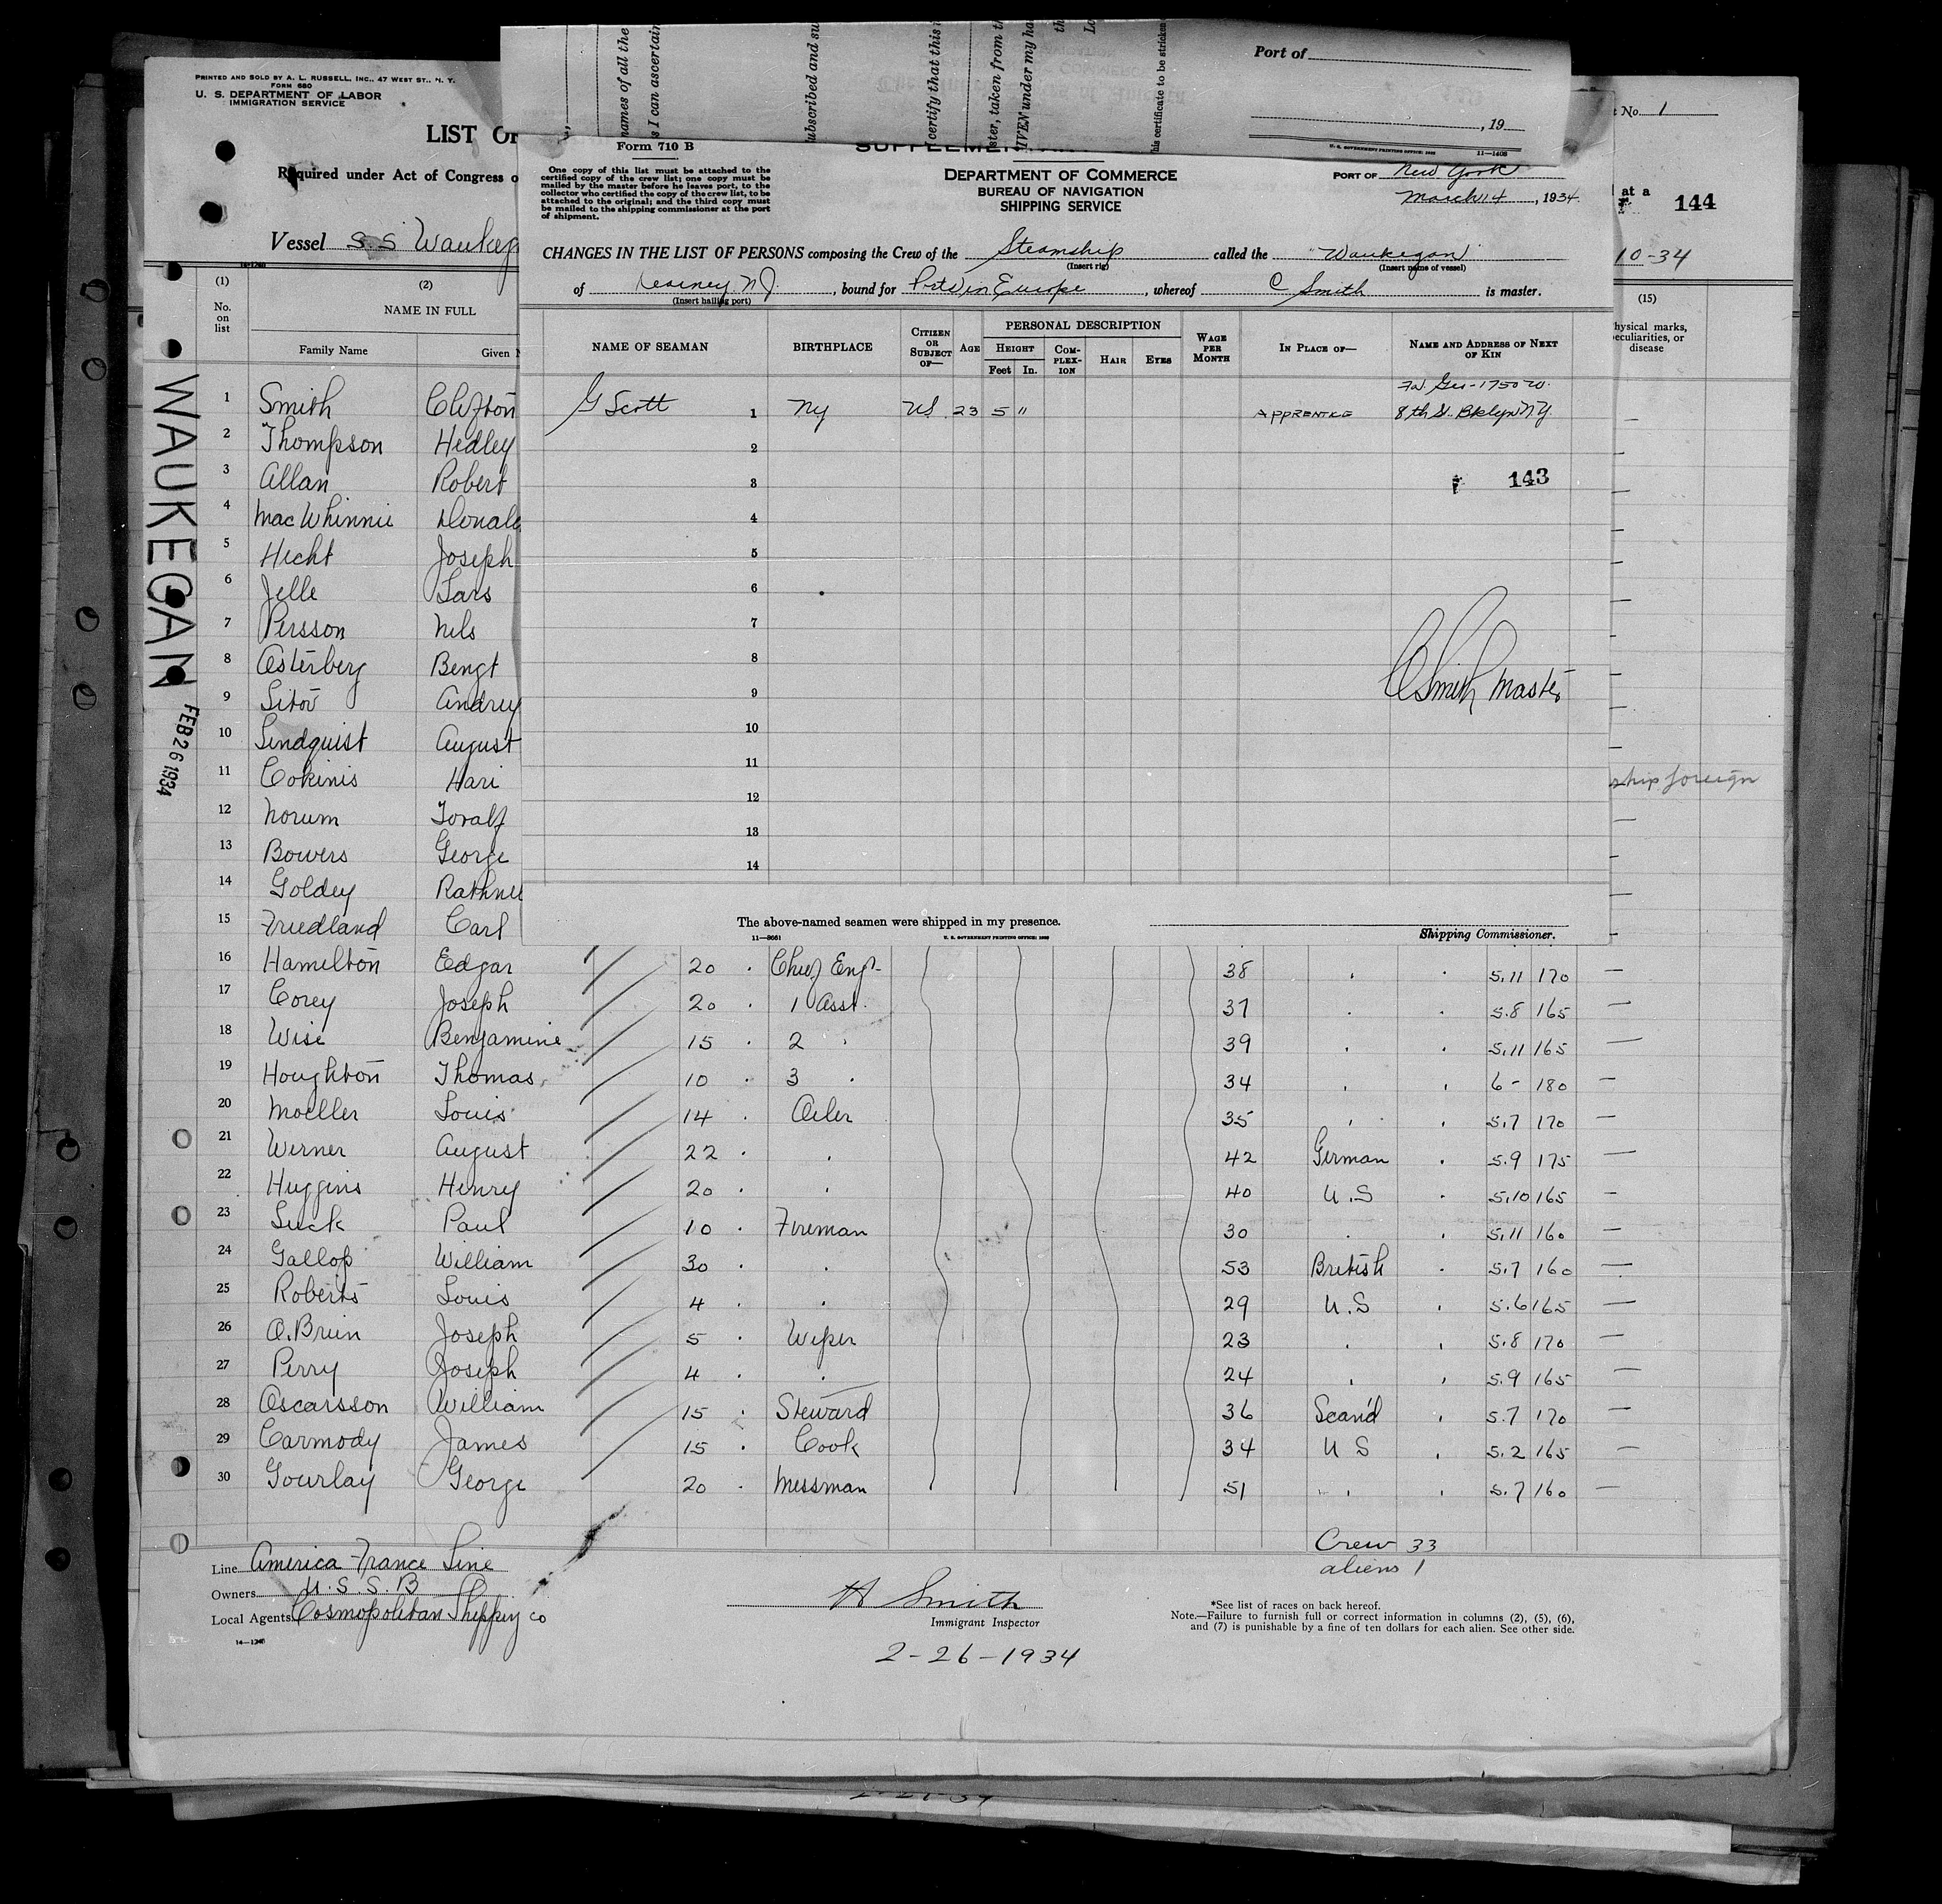 names of all the
s I can ascertain
ubscribed and su
certify that this
ster, taken from th
IVEN under my ha
his certificate to be stricken
Port of
, 19
U. S. GOVERNMENT PRINTING OFFICE
11—1408
PRINTED AND SOLD BY A. L. RUSSELL, INC., 47 WEST ST., N. Y.
FORM 680
U. S. DEPARTMENT OF LABOR
IMMIGRATION SERVICE
LIST OF
Required under Act of Congress o
Vessel S.S Waukeg
No. 1
at a
144
10-34
Form 710 B
One copy of this list must be attached to the
certified copy of the crew list; one copy must be
mailed by the master before he leaves port, to the
collector who certified the copy of the crew list, to be
attached to the original; and the third copy must
be mailed to the shipping commissioner at the port
of shipment.
DEPARTMENT OF COMMERCE
BUREAU OF NAVIGATION
SHIPPING SERVICE
PORT OF New York
March 14, 1934
CHANGES IN THE LIST OF PERSONS composing the Crew of the Steamship called the "Waukegan"
(Insert rig) (Insert name of vessel)
of Kearney NJ., bound for Ports in Europe, whereof C Smith is master.
(Insert hailing port)
NAME OF SEAMAN BIRTHPLACE CITIZEN OR SUBJECT OF— AGE PERSONAL DESCRIPTION HEIGHT Feet In. COMPLEXION HAIR EYES WAGE PER MONTH IN PLACE OF— NAME AND ADDRESS OF NEXT OF KIN
G Scott 1 NY US 23 5 11 APPRENTICE 1750 W.
8th St. Bklyn N.Y.
2
3 143
4
5
6
7
8
9
C Smith Master
10
11
12
13
14
The above-named seamen were shipped in my presence.
Shipping Commissioner.
11—8661 U. S. GOVERNMENT PRINTING OFFICE
WAUKEGAN
FEB 26 1934
(1) (2) (15)
No. on list NAME IN FULL
Family Name Given
hysical marks,
eculiarities, or
disease
1 Smith Clifton
2 Thompson Hedley
3 Allan Robert
4 MacWhinnie Donald
5 Hecht Joseph
6 Jelle Lars
7 Persson Nils
8 Osterberg Bengt
9 Sitov Andrey
10 Lindquist August
11 Cokinis Hari ship foreign
12 Norum Toralf
13 Bowers George
14 Goldey Rathne
15 Friedland Carl
16 Hamilton Edgar 20 Chief Engr 38 5.11 170 —
17 Corey Joseph 20 1 Asst. 37 5.8 165 —
18 Wise Benjamine 15 2 " 39 5.11 165 —
19 Houghton Thomas 10 3 " 34 6 - 180 —
20 Moeller Louis 14 Oiler 35 5.7 170 —
21 Werner August 22 " 42 German 5.9 175 —
22 Huggins Henry 20 " 40 U.S 5.10 165 —
23 Luck Paul 10 Fireman 30 5.11 160 —
24 Gallop William 30 " 53 British 5.7 160 —
25 Roberts Louis 4 " 29 U.S 5.6 165 —
26 O.Brien Joseph 5 Wiper 23 5.8 170 —
27 Perry Joseph 4 " 24 5.9 165 —
28 Oscarsson William 15 Steward 36 Scand 5.7 170 —
29 Carmody James 15 Cook 34 U S 5.2 165 —
30 Gourlay George 20 Messman 51 5.7 160 —
Crew 33
aliens 1
Line America France Line
Owners U.S.S.B
Local Agents Cosmopolitan Shipping co
14—1240
H Smith
Immigrant Inspector
2-26-1934
*See list of races on back hereof.
Note.—Failure to furnish full or correct information in columns (2), (5), (6),
and (7) is punishable by a fine of ten dollars for each alien. See other side.